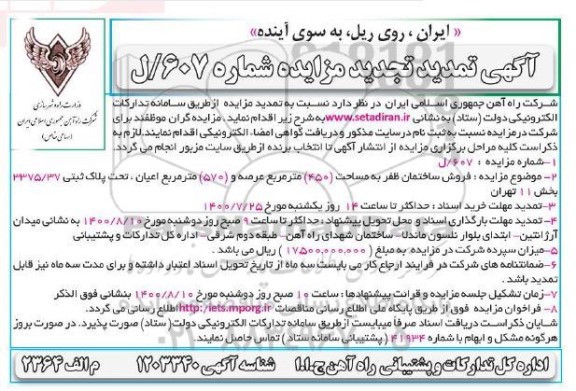 « ایران ، روی ریل، به سوی آینده»
آگهی تمدید تجدید مزایده شماره ۶۰۷/ل
وزارت راه و شهرسازی
شرکت راه آهن جمهوری اسلامی ایران
(سهامی خاص)
شرکت راه آهن جمهوری اسلامی ایران در نظر دارد نسبت به تمدید مزایده ازطریق سامانه تدارکات
الکترونیکی دولت (ستاد) به نشانی www.setadiran.ir به شرح زیر اقدام نماید . مزایده گران موظفند برای
شرکت در مزایده نسبت به ثبت نام درسایت مذکور و دریافت گواهی امضاء الکترونیکی اقدام نمایند.لازم به
ذکراست کلیه مراحل برگزاری مزایده از انتشار آگهی تا انتخاب برنده ازطریق سایت مزبور انجام می گردد.
۱-شماره مزایده : ۶۰۷/ل
۲- موضوع مزایده : فروش ساختمان ظفر به مساحت (۴۵۰) مترمربع عرصه و (۵۷۰) مترمربع اعیان ، تحت پلاک ثبتی ۳۳۷۵/۳۷
بخش ۱۱ تهران
۳-تمدید مهلت خرید اسناد : حداکثر تا ساعت ۱۴ روز یکشنبه مورخ ۱۴۰۰/۷/۲۵
۴-تمدید مهلت بارگذاری اسناد و محل تحویل پیشنهاد : حداکثر تا ساعت ۹ صبح روز دوشنبه مورخ ۱۴۰۰/۸/۱۰ به نشانی میدان
آرژانتین- ابتدای بلوار نلسون ماندلا- ساختمان شهدای راه آهن- طبقه دوم شرقی- اداره کل تدارکات و پشتیبانی
۵-میزان سپرده شرکت در مزایده به مبلغ ( ۱۷٬۵۰۰٬۰۰۰٬۰۰۰ ) ریال می باشد .
۶-ضمانتنامه های شرکت در فرایند ارجاع کار می بایست سه ماه از تاریخ تحویل اسناد اعتبار داشته و برای مدت سه ماه نیز قابل
تمدید باشد .
۷-زمان تشکیل جلسه مزایده و قرائت پیشنهادها : ساعت ۱۰ صبح روز دوشنبه مورخ ۱۴۰۰/۸/۱۰ بنشانی فوق الذکر
۸- فراخوان مزایده فوق از طریق پایگاه ملی اطلاع رسانی مناقصات http://iets.mporg.ir اطلاع رسانی می گردد.
شایان ذکراست دریافت اسناد صرفاً میبایست ازطریق سامانه تدارکات الکترونیکی دولت( ستاد) صورت پذیرد. در صورت بروز
هرگونه مشکل و ابهام با شماره ۴۱۹۳۴ ( پشتیبانی سامانه ستاد ) تماس حاصل نمایند.
اداره کل تدارکات و پشتیبانی راه آهن ج.ا.ا شناسه آگهی ۱۲۰۳۳۴۰ م الف ۲۳۶۴